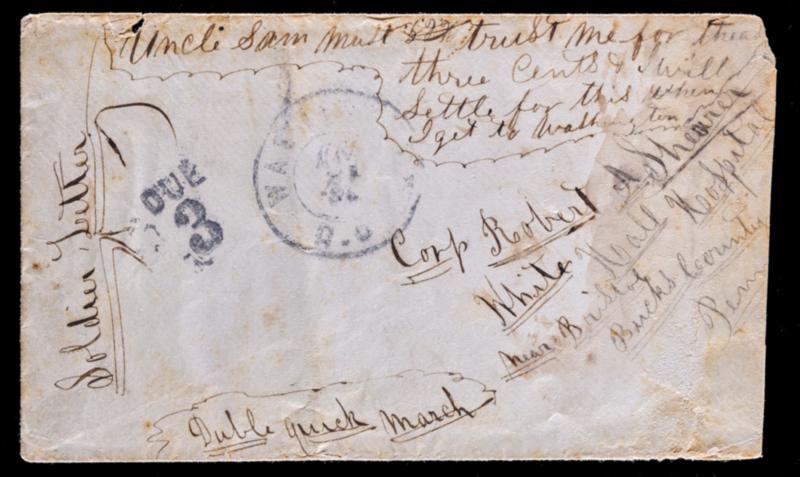 Uncle Sam must trust me for these
three Cents & I will
Settle for this when
I get to Washington
Soldier Letter
DUE
3
Corp Robert A Shearer
White Hall Hospital
near Bristol
Bucks County
Penn
Duble quick march